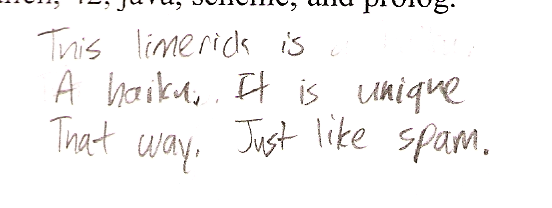 42, java, scheme, and prolog.
This limerick is
A haiku. It is unique
That way. Just like spam.